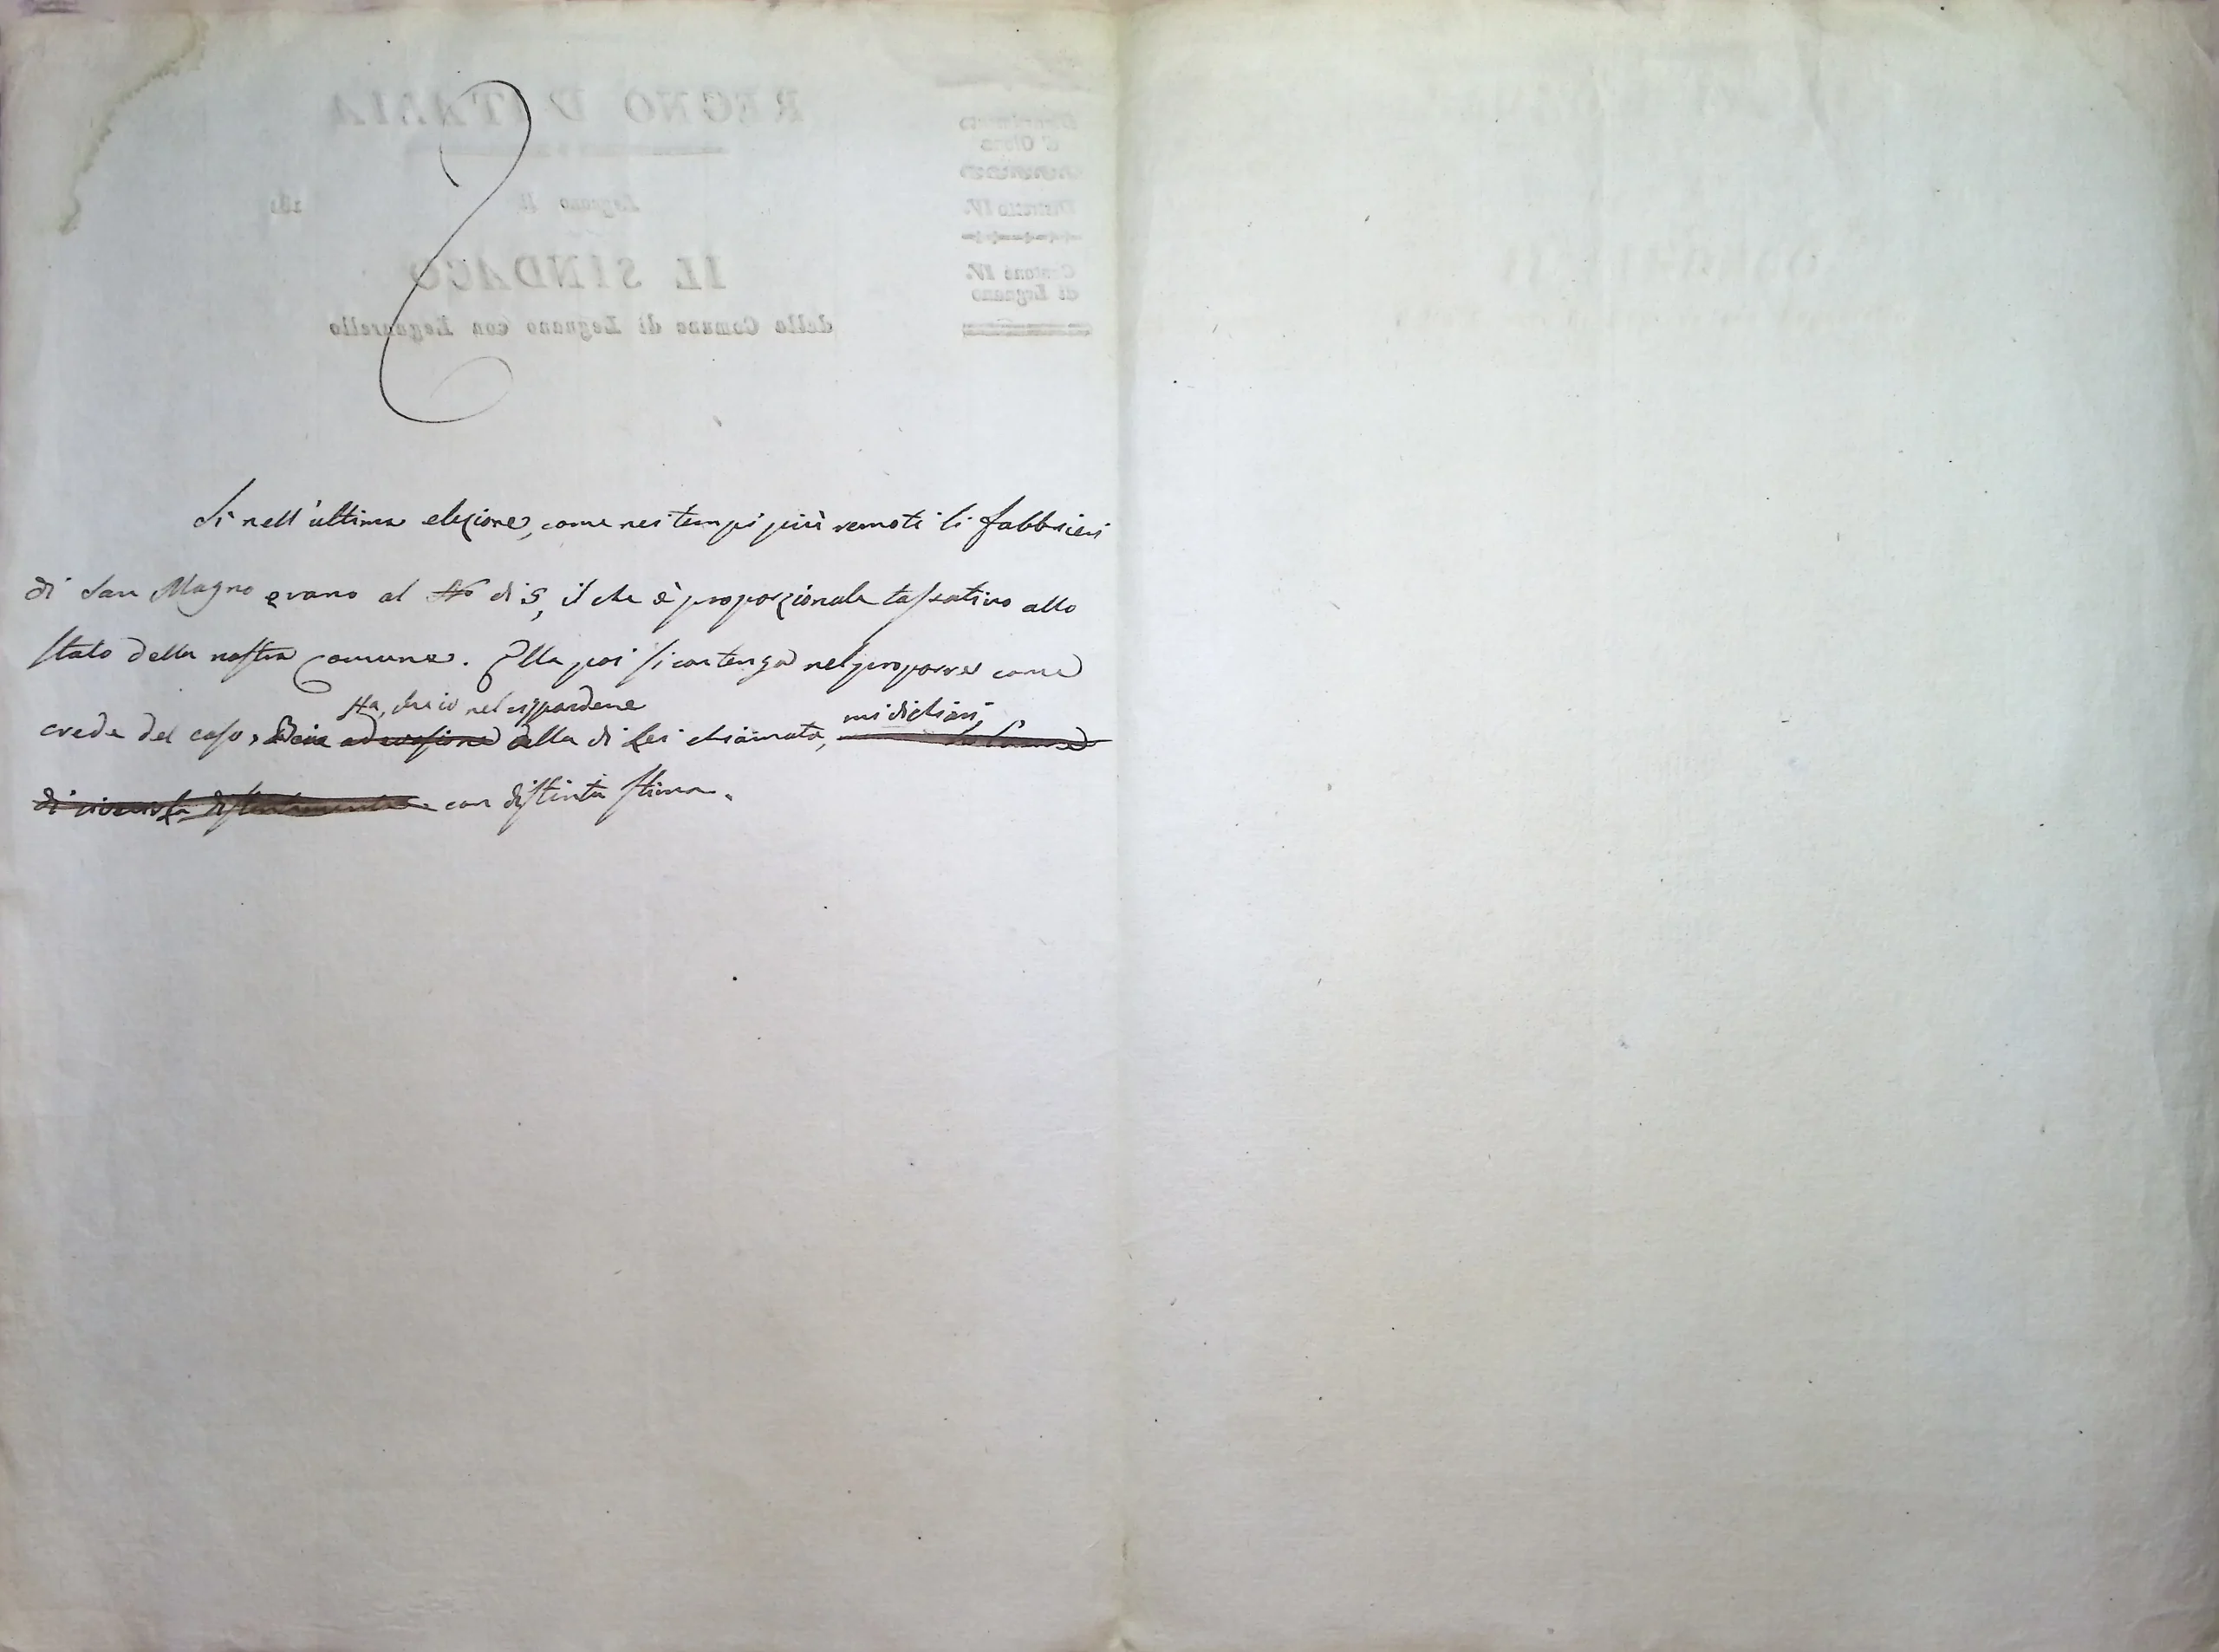 Sì nell'ultima elezione, come nei tempi più remoti li fabbricieri
di San Magno erano al N.o di 5, il che è proporzionale tassativo allo
stato della nostra Comune. Ella poi si contenga nel proporre come
sta, che io nel risponderle mi dichiari
crede del caso, ad evasione della di Lei chiamata,
di riverirla distintamente con distinta stima.
REGNO D'ITALIA
Legnano li 181
IL SINDACO
dello Comune di Legnano con Legnarello
Dipartimento
d'Olona
Distretto IV.
Cantone IV.
di Legnano